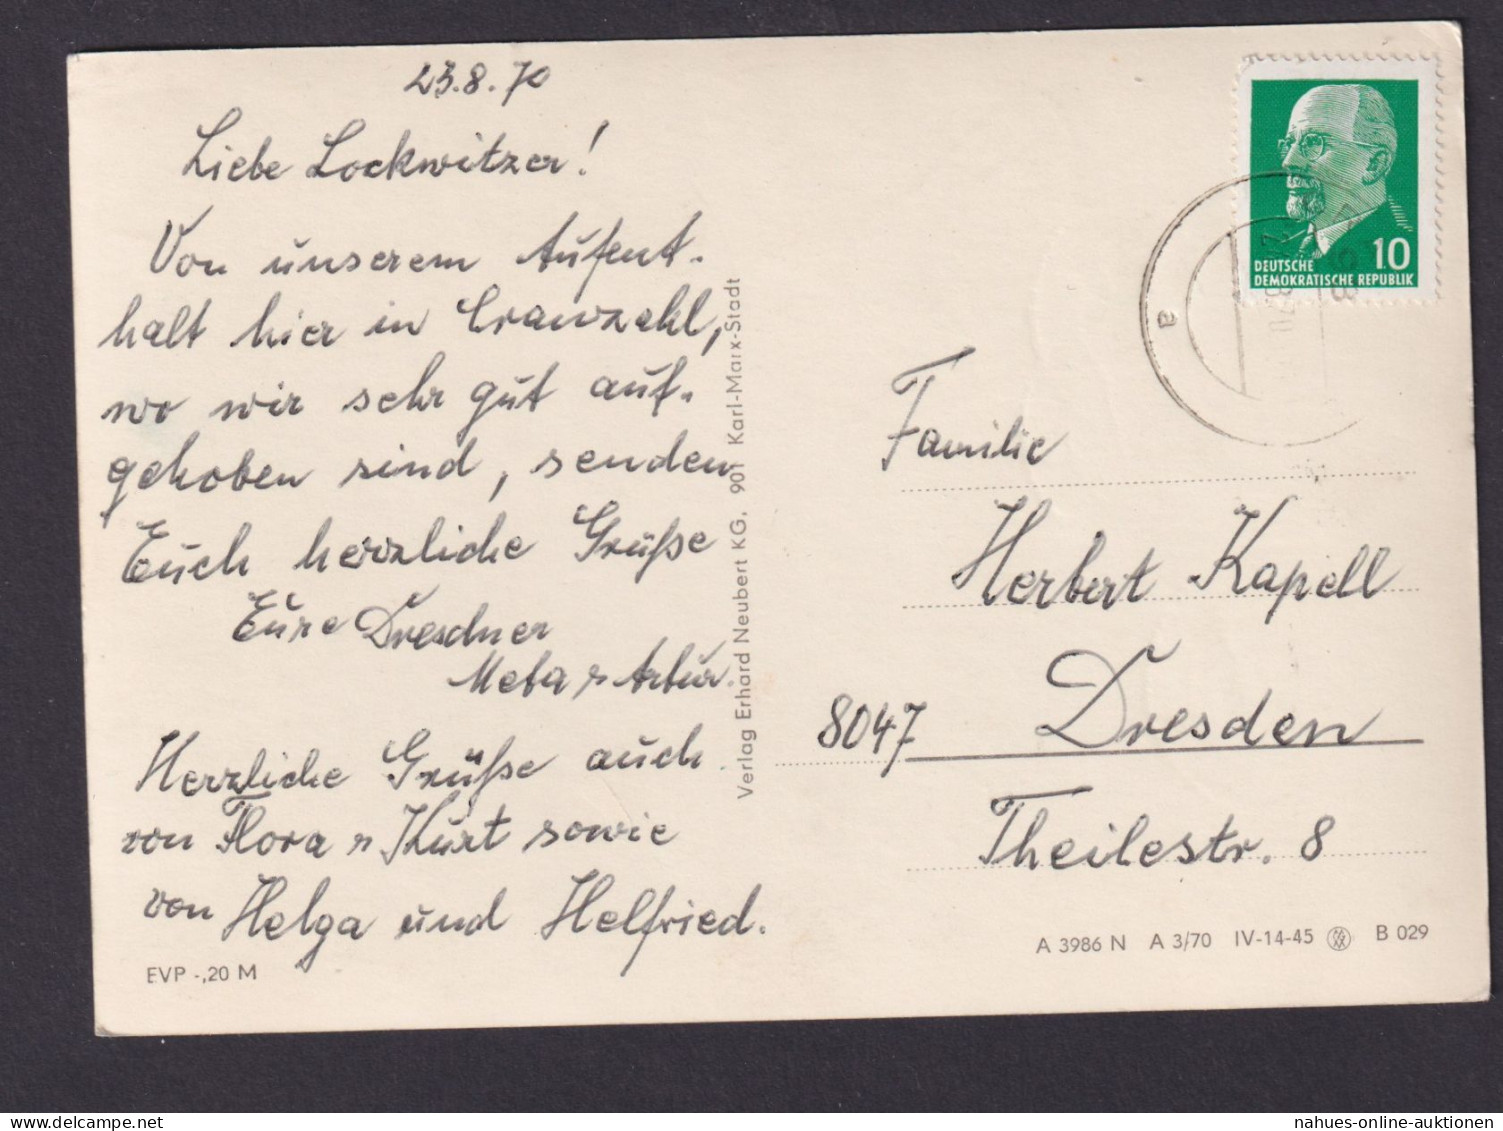 23.8.70
Liebe Lockwitzer!
Von unserem Aufent-
halt hier in Cranzahl,
wo wir sehr gut auf-
gehoben sind, senden
Euch herzliche Grüße
Eure Dresdner
Meta u Artur.
Herzliche Grüße auch
von Flora u Kurt sowie
von Helga und Helfried.
EVP -,20 M
Verlag Erhard Neubert KG, 901 Karl-Marx-Stadt
10
DEUTSCHE
DEMOKRATISCHE REPUBLIK
a
Familie
Herbert Kapell
8047 Dresden
Theilestr. 8
A 3986 N A 3/70 IV-14-45 B 029
nahues-online-auktionen